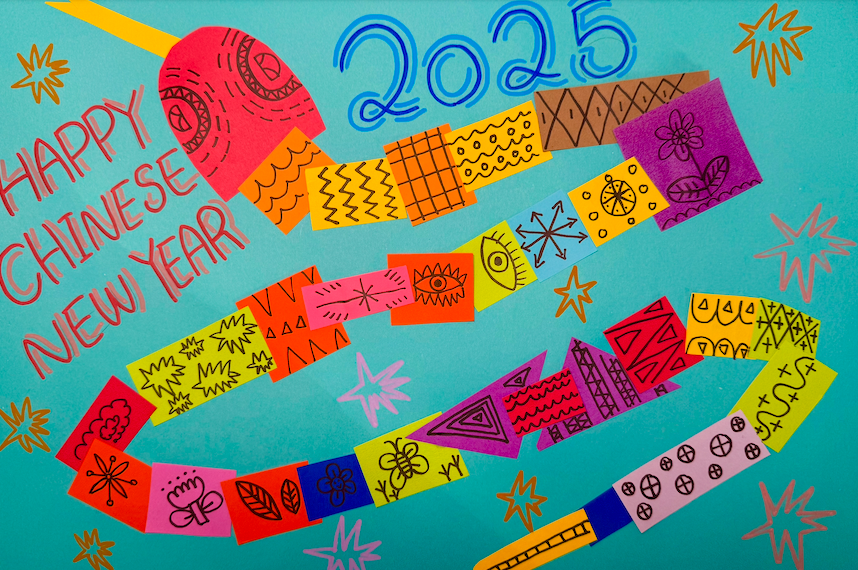 2025
HAPPY
CHINESE
NEW YEAR